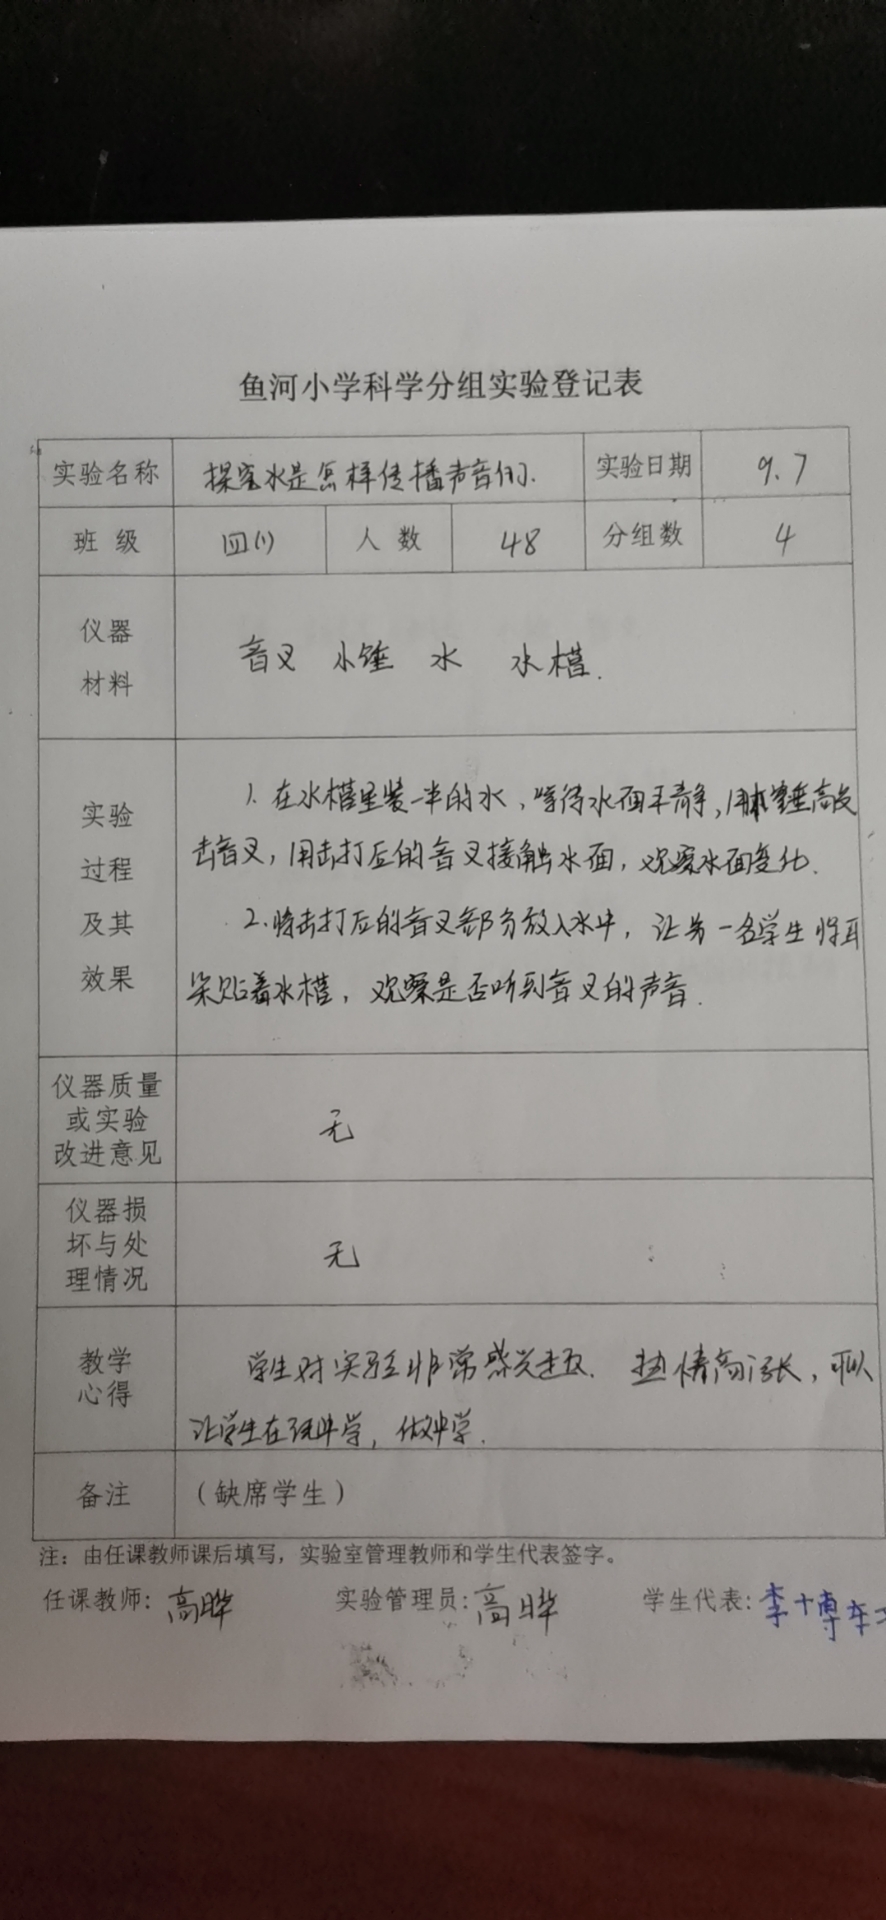 鱼河小学科学分组实验登记表
实验名称 探究水是怎样传播声音的. 实验日期 9.7
班级 四(1) 人数 48 分组数 4
仪器
材料
音叉 小锤 水 水槽.
实验
过程
及其
效果
1. 在水槽里装一半的水，等待水面平静，用
击音叉，用击打后的音叉接触水面，观察水面变化.
2. 将击打后的音叉部分放入水中，让另一名学生将耳
朵贴着水槽，观察是否听到音叉的声音.
仪器质量
或实验
改进意见
无
仪器损
坏与处
理情况
无
教学
心得
学生对实验非常感兴趣. 热情高涨，可以
让学生在玩中学，做中学.
备注 （缺席学生）
注：由任课教师课后填写，实验室管理教师和学生代表签字。
任课教师：高晔 实验管理员：高晔 学生代表：李博